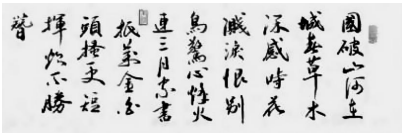 國破山河在
城春草木
深感時花
濺淚恨別
鳥驚心烽火
連三月家書
抵萬金白
頭搔更短
渾欲不勝
簪